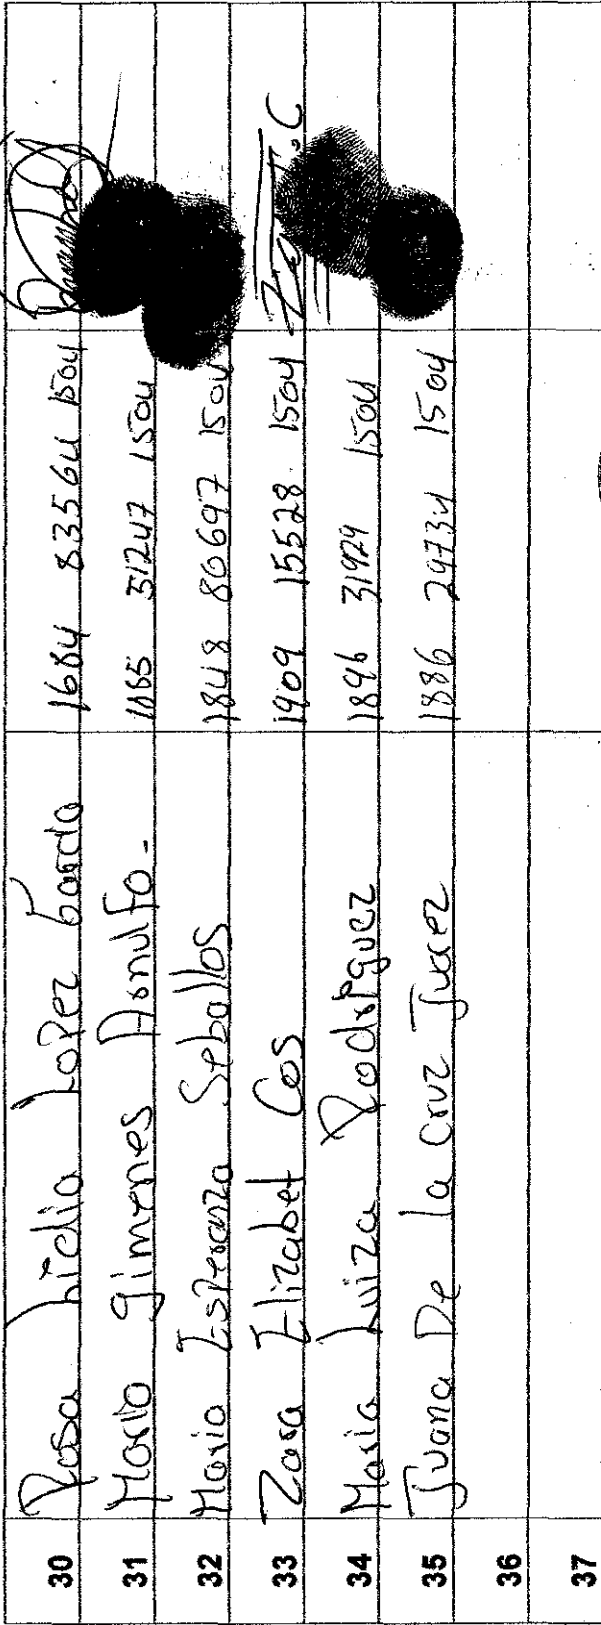 30 Rosa Lidia Lopez 1684 83564 1504
31 Gimenes Arnulfo. 51247 1504
32 Maria Esperanza Seballos 1848 80697 1504
33 Zara Elizabet Cos 1909 15528 1504
34 Maria Luiza Rodriguez 1896 31929 1504
35 Juana De la cruz Juarez 1886 29734 1504
36
37